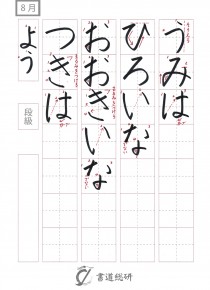 うみは
ひろいな
おおきいな
つきは
8月
よう
段級
書道総研